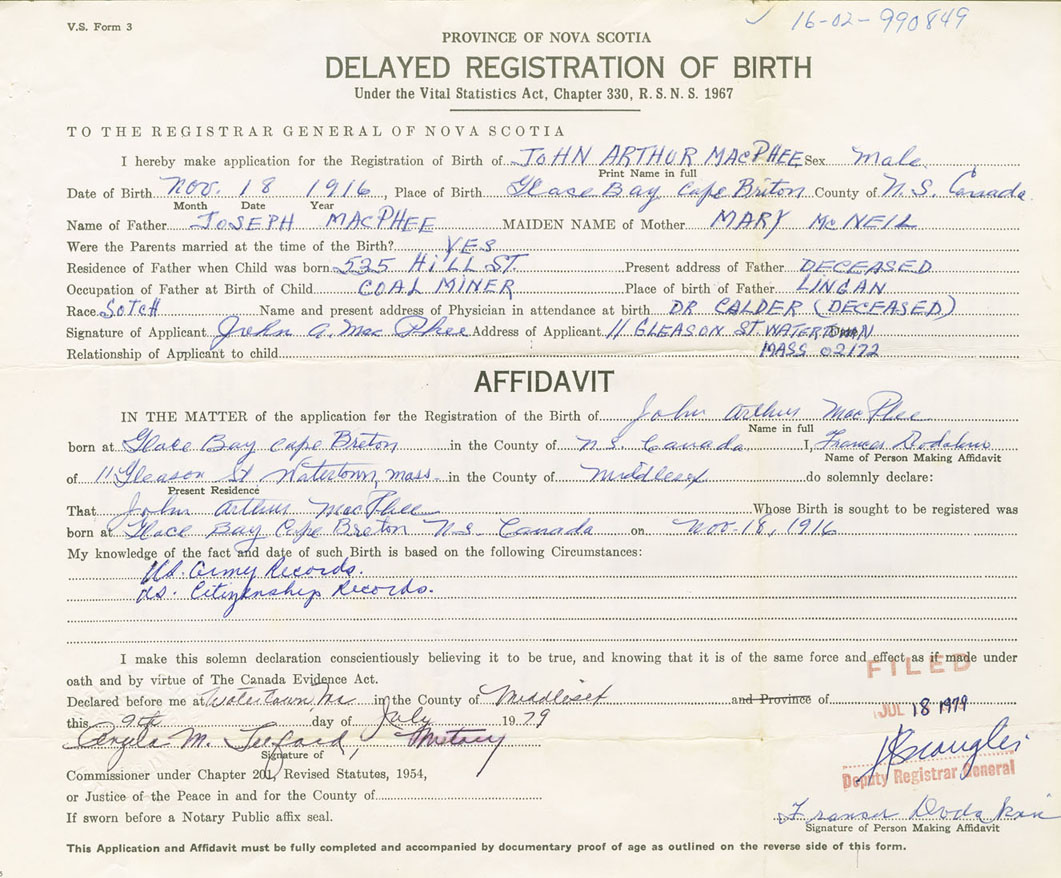 V.S. Form 3
16-02-990849
PROVINCE OF NOVA SCOTIA
DELAYED REGISTRATION OF BIRTH
Under the Vital Statistics Act, Chapter 330, R.S.N.S. 1967
TO THE REGISTRAR GENERAL OF NOVA SCOTIA
I hereby make application for the Registration of Birth of JOHN ARTHUR MACPHEE Sex Male
Print Name in full
Date of Birth Nov. 18 1916, Place of Birth Glace Bay Cape Briton County of N.S. Canada
Month Date Year
Name of Father JOSEPH MACPHEE MAIDEN NAME of Mother MARY McNEIL
Were the Parents married at the time of the Birth? YES
Residence of Father when Child was born 535 HILL ST. Present address of Father DECEASED
Occupation of Father at Birth of Child COAL MINER Place of birth of Father LINGAN
Race SOTCH Name and present address of Physician in attendance at birth DR CALDER (DECEASED)
Signature of Applicant John A. MacPhee Address of Applicant 11 GLEASON ST. WATERTOWN
Relationship of Applicant to child MASS 02172
AFFIDAVIT
IN THE MATTER of the application for the Registration of the Birth of John Arthur MacPhee
Name in full
born at Glace Bay Cape Breton in the County of N.S. Canada I, Frances
Name of Person Making Affidavit
of 11 Gleason St Watertown, Mass. in the County of Middlesex do solemnly declare:
Present Residence
That John Arthur MacPhee Whose Birth is sought to be registered was
born at Glace Bay Cape Breton N.S. Canada on Nov-18, 1916
My knowledge of the fact and date of such Birth is based on the following Circumstances:
U.S. Army Records.
U.S. Citizenship Records.
I make this solemn declaration conscientiously believing it to be true, and knowing that it is of the same force and effect as if made under
oath and by virtue of The Canada Evidence Act.
FILED
Declared before me at Watertown Ma in the County of Middlesex and Province of
JUL 18 1979
this 9th day of July 1979
Angela M. Telford, Notary
Signature of
Deputy Registrar General
Commissioner under Chapter 201, Revised Statutes, 1954,
or Justice of the Peace in and for the County of
If sworn before a Notary Public affix seal.
Signature of Person Making Affidavit
This Application and Affidavit must be fully completed and accompanied by documentary proof of age as outlined on the reverse side of this form.